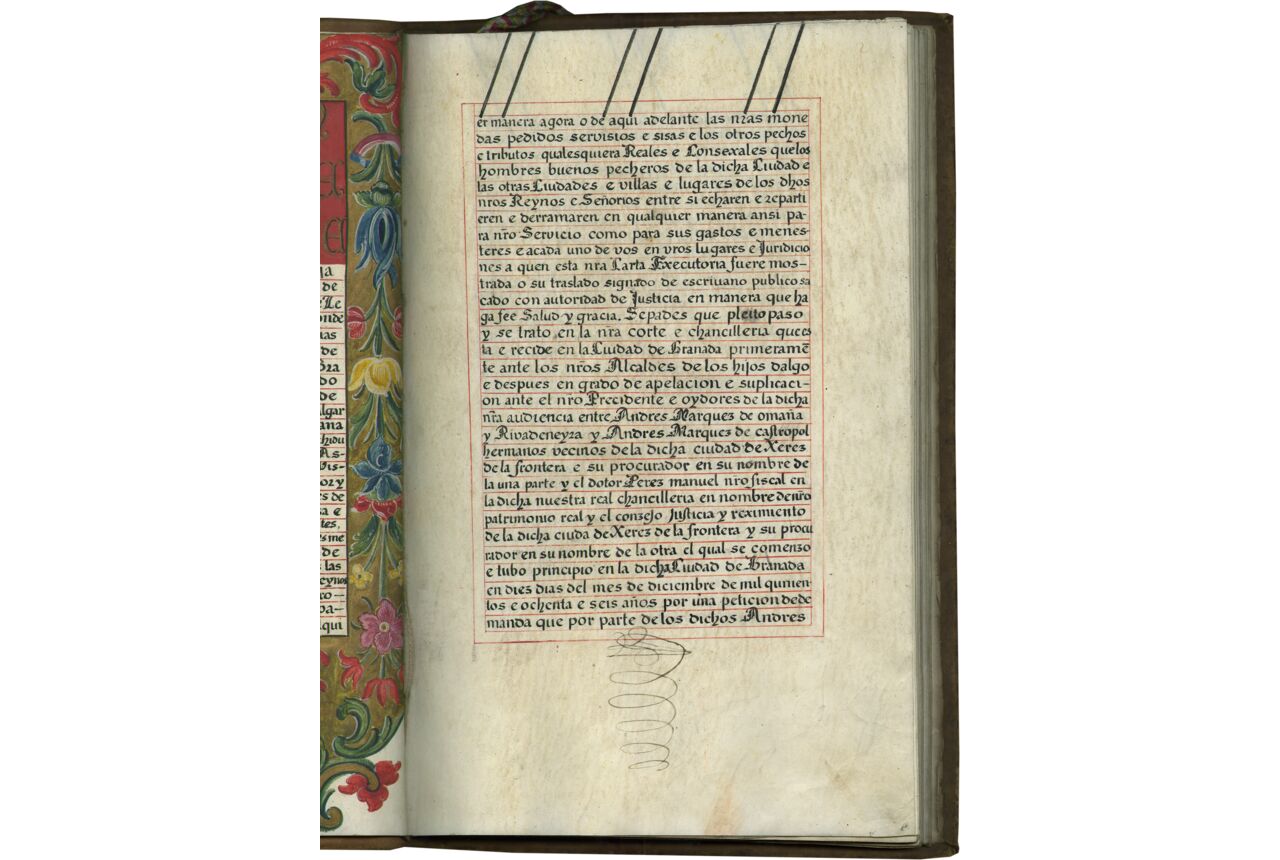 er manera agora o de aqui adelante las nr̃as mone
das pedidos servisios e sisas e los otros pechos
e tributos qualesquiera Reales e Consexales que los
hombres buenos pecheros de la dicha Ciudad e
las otras Ciudades e villas e lugares de los dhos
nros Reynos e Señorios entre si echaren e reparti
eren e derramaren en qualquier manera ansi pa-
ra nr̃o Servicio como para sus gastos e menes-
teres e acada uno de vos en vros lugares e Juridicio
nes a quen esta nra Carta Executoria fuere mos-
trada o su traslado signado de escriuano publico sa
cado con autoridad de Justicia en manera que ha
ga fee Salud y gracia. Sepades que pleito paso
y se trato en la nr̃a corte e chancilleria que es
ta e recide en la Ciudad de Granada primeramẽ
te ante los nr̃os Alcaldes de los hijos dalgo
e despues en grado de apelacion e suplicaci-
on ante el nr̃o Precidente e oydores de la dicha
nr̃a audiencia entre Andres Marquez de omaña
y Rivadeneyra y Andres Marquez de castropol
hermanos vecinos dela dicha ciudad de Xerez
de la frontera e su procurador en su nombre de
la una parte y el dotor Perez manuel nr̃o fiscal en
la dicha nuestra real chancilleria en nombre de nr̃o
patrimonio real y el consejo Justicia y reximiento
de la dicha ciuda de Xerez de la frontera y su procu
rador en su nombre de la otra el qual se comenzo
e tubo principio en la dicha Ciudad de Granada
en diez dias del mes de diciembre de mil quinien
tos e ochenta e seis años por una peticion de de
manda que por parte de los dichos Andres